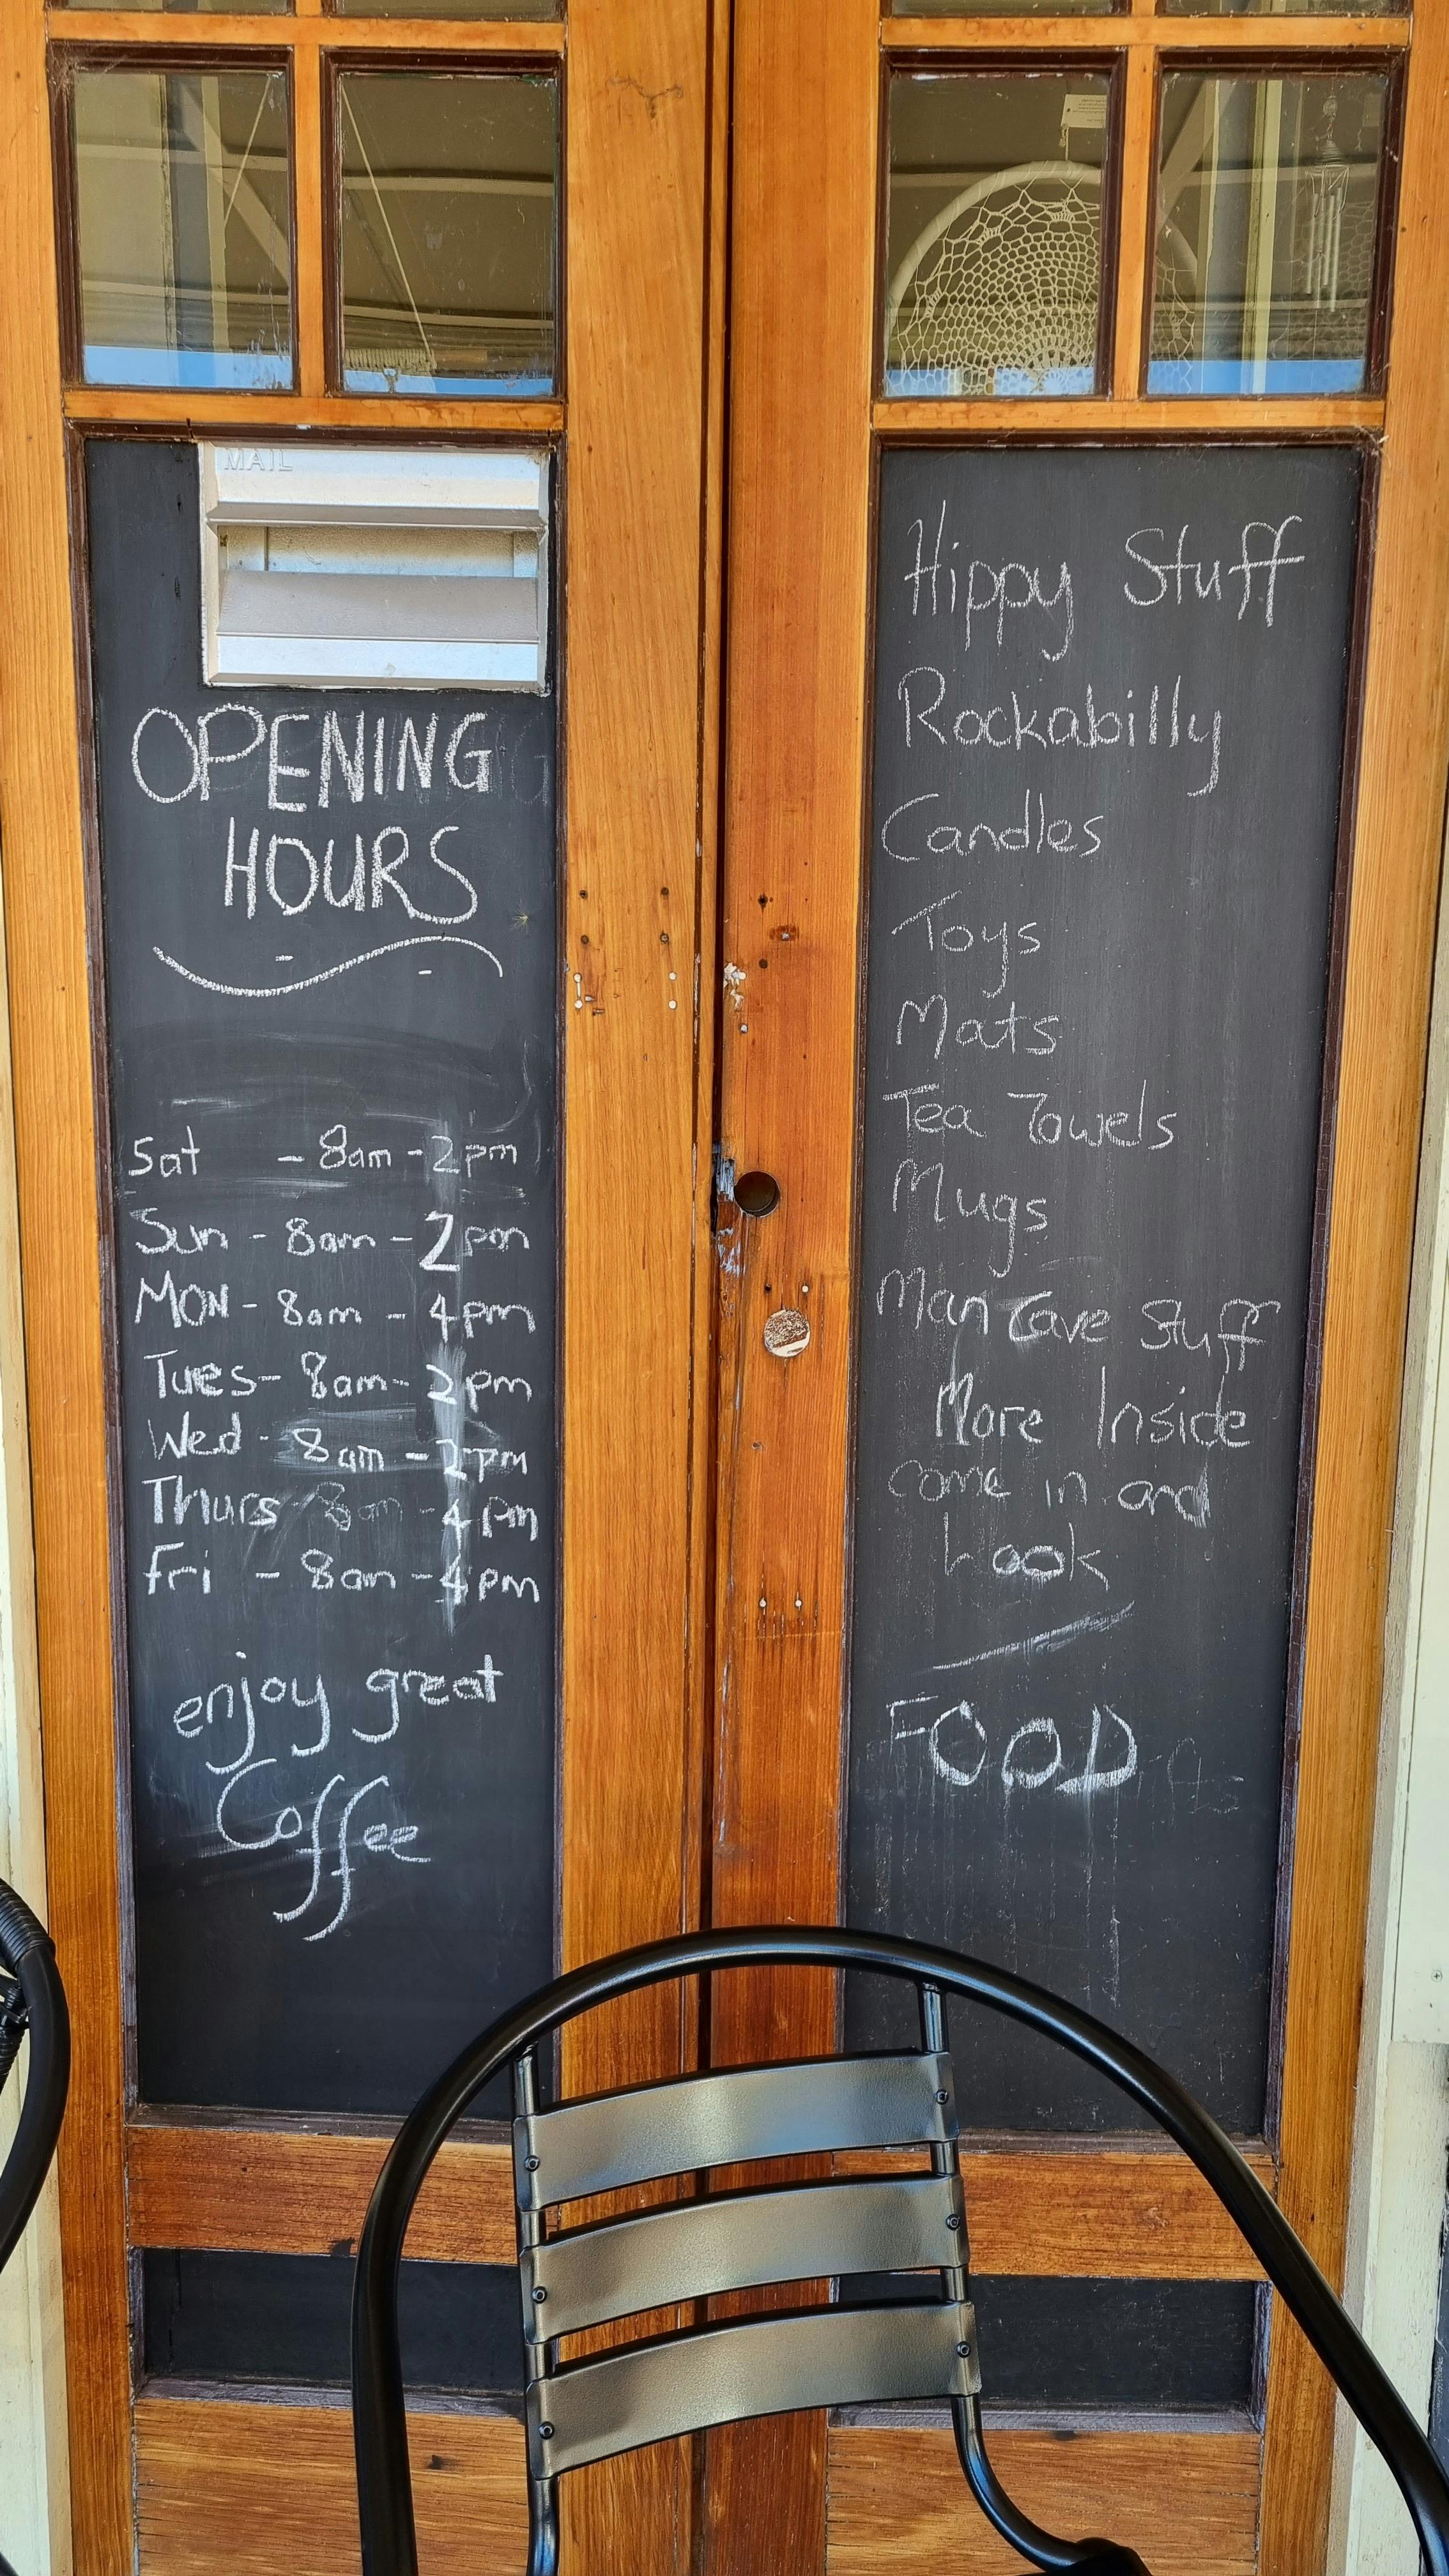 MAIL
OPENING
HOURS
Sat - 8am - 2pm
Sun - 8am - 2pm
MON - 8am - 4pm
Tues - 8am - 2pm
Wed - 8am - 2pm
Thurs - 8am - 4pm
Fri - 8am - 4pm
enjoy great
Coffee
Hippy Stuff
Rockabilly
Candles
Toys
Mats
Tea Towels
Mugs
Man Cave Stuff
More Inside
come in and
Look
FOOD